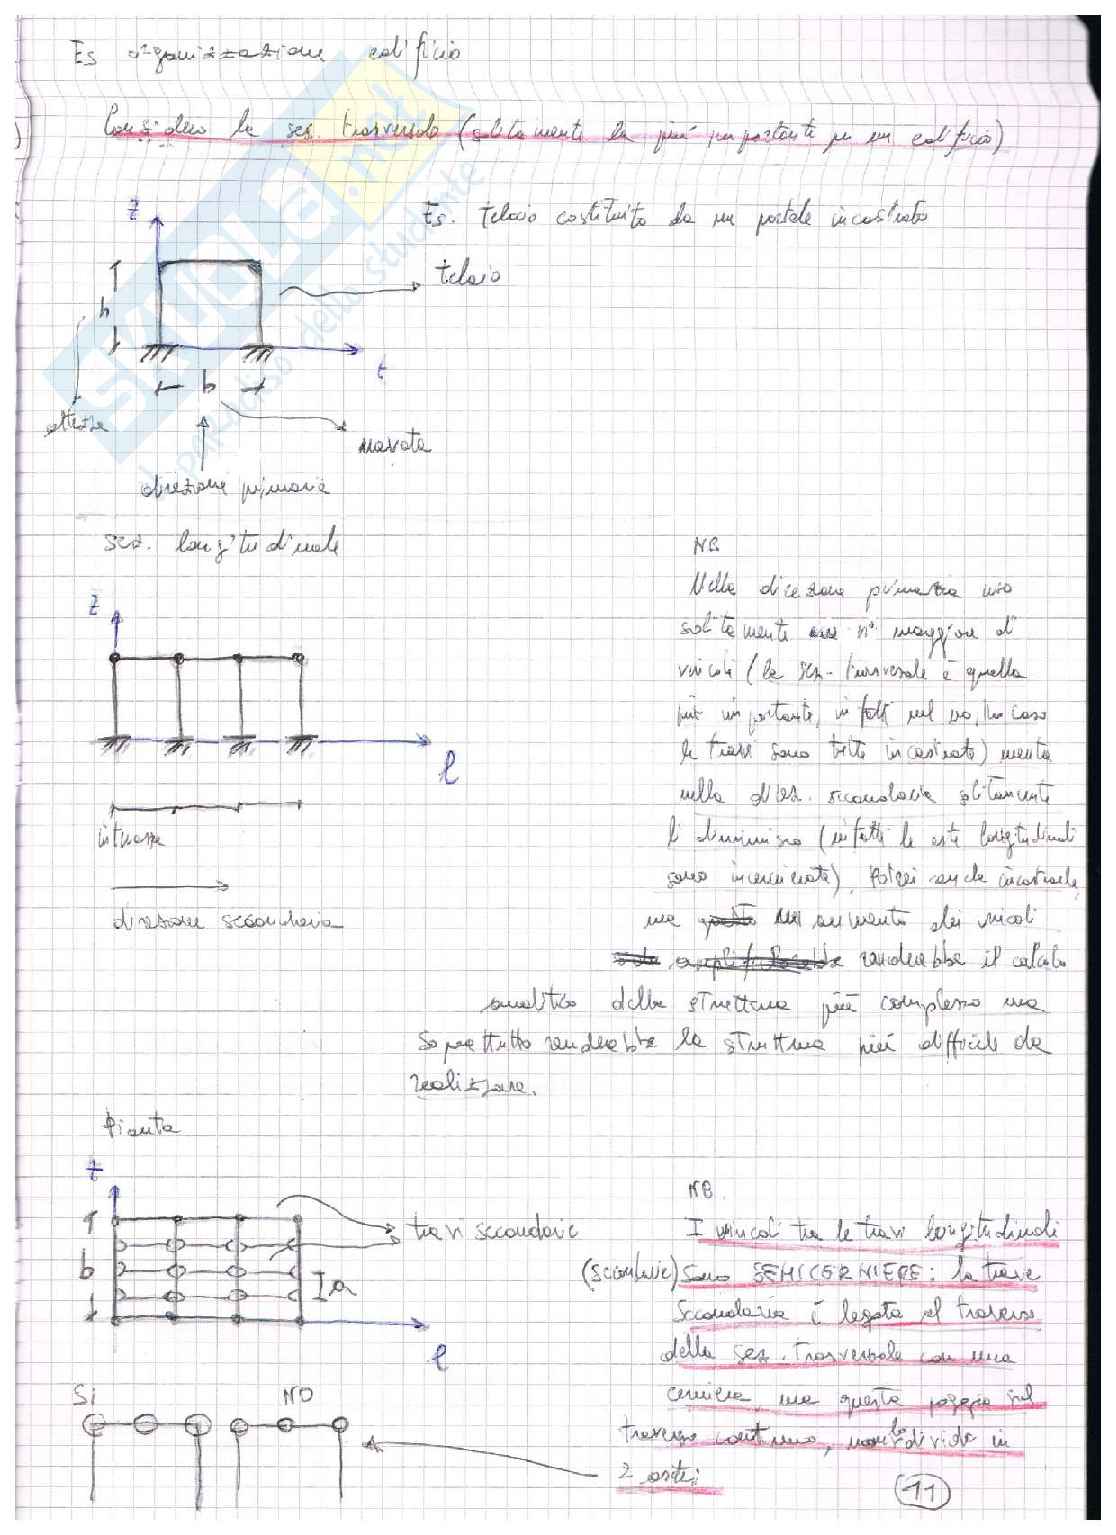 Es organizzazione edificio
Considero la sez. trasversale (solitamente la più importante per un edificio)
z
Es. telaio costituito da un portale incastrato
telaio
h
t
b
altezza
navata
direzione primaria
sez. longitudinale
NB
z
Nella direzione primaria uso
solitamente un n° maggiore di
vincoli (la sez. trasversale è quella
più importante, infatti nel ns. caso
le travi sono tutte incastrate) mentre
nella direz. secondaria solitamente
li diminuisco (infatti le aste longitudinali
sono incernierate). Potrei anche incastrarle,
l
interasse
direzione secondaria
ma un aumento dei vincoli
renderebbe il calcolo
analitico della struttura più complesso ma
soprattutto renderebbe la struttura più difficile da
realizzare.
Pianta
t
NB.
travi secondarie
I vincoli tra le travi longitudinali
b
a
(secondarie) sono SEMICERNIERE: la trave
secondaria è legata al traverso
l
della sez. trasversale con una
Si
NO
cerniera, ma questa poggia sul
traverso continuo, non lo divide in
2 aste;
11
SKUOLA.net
il paradiso dello studente